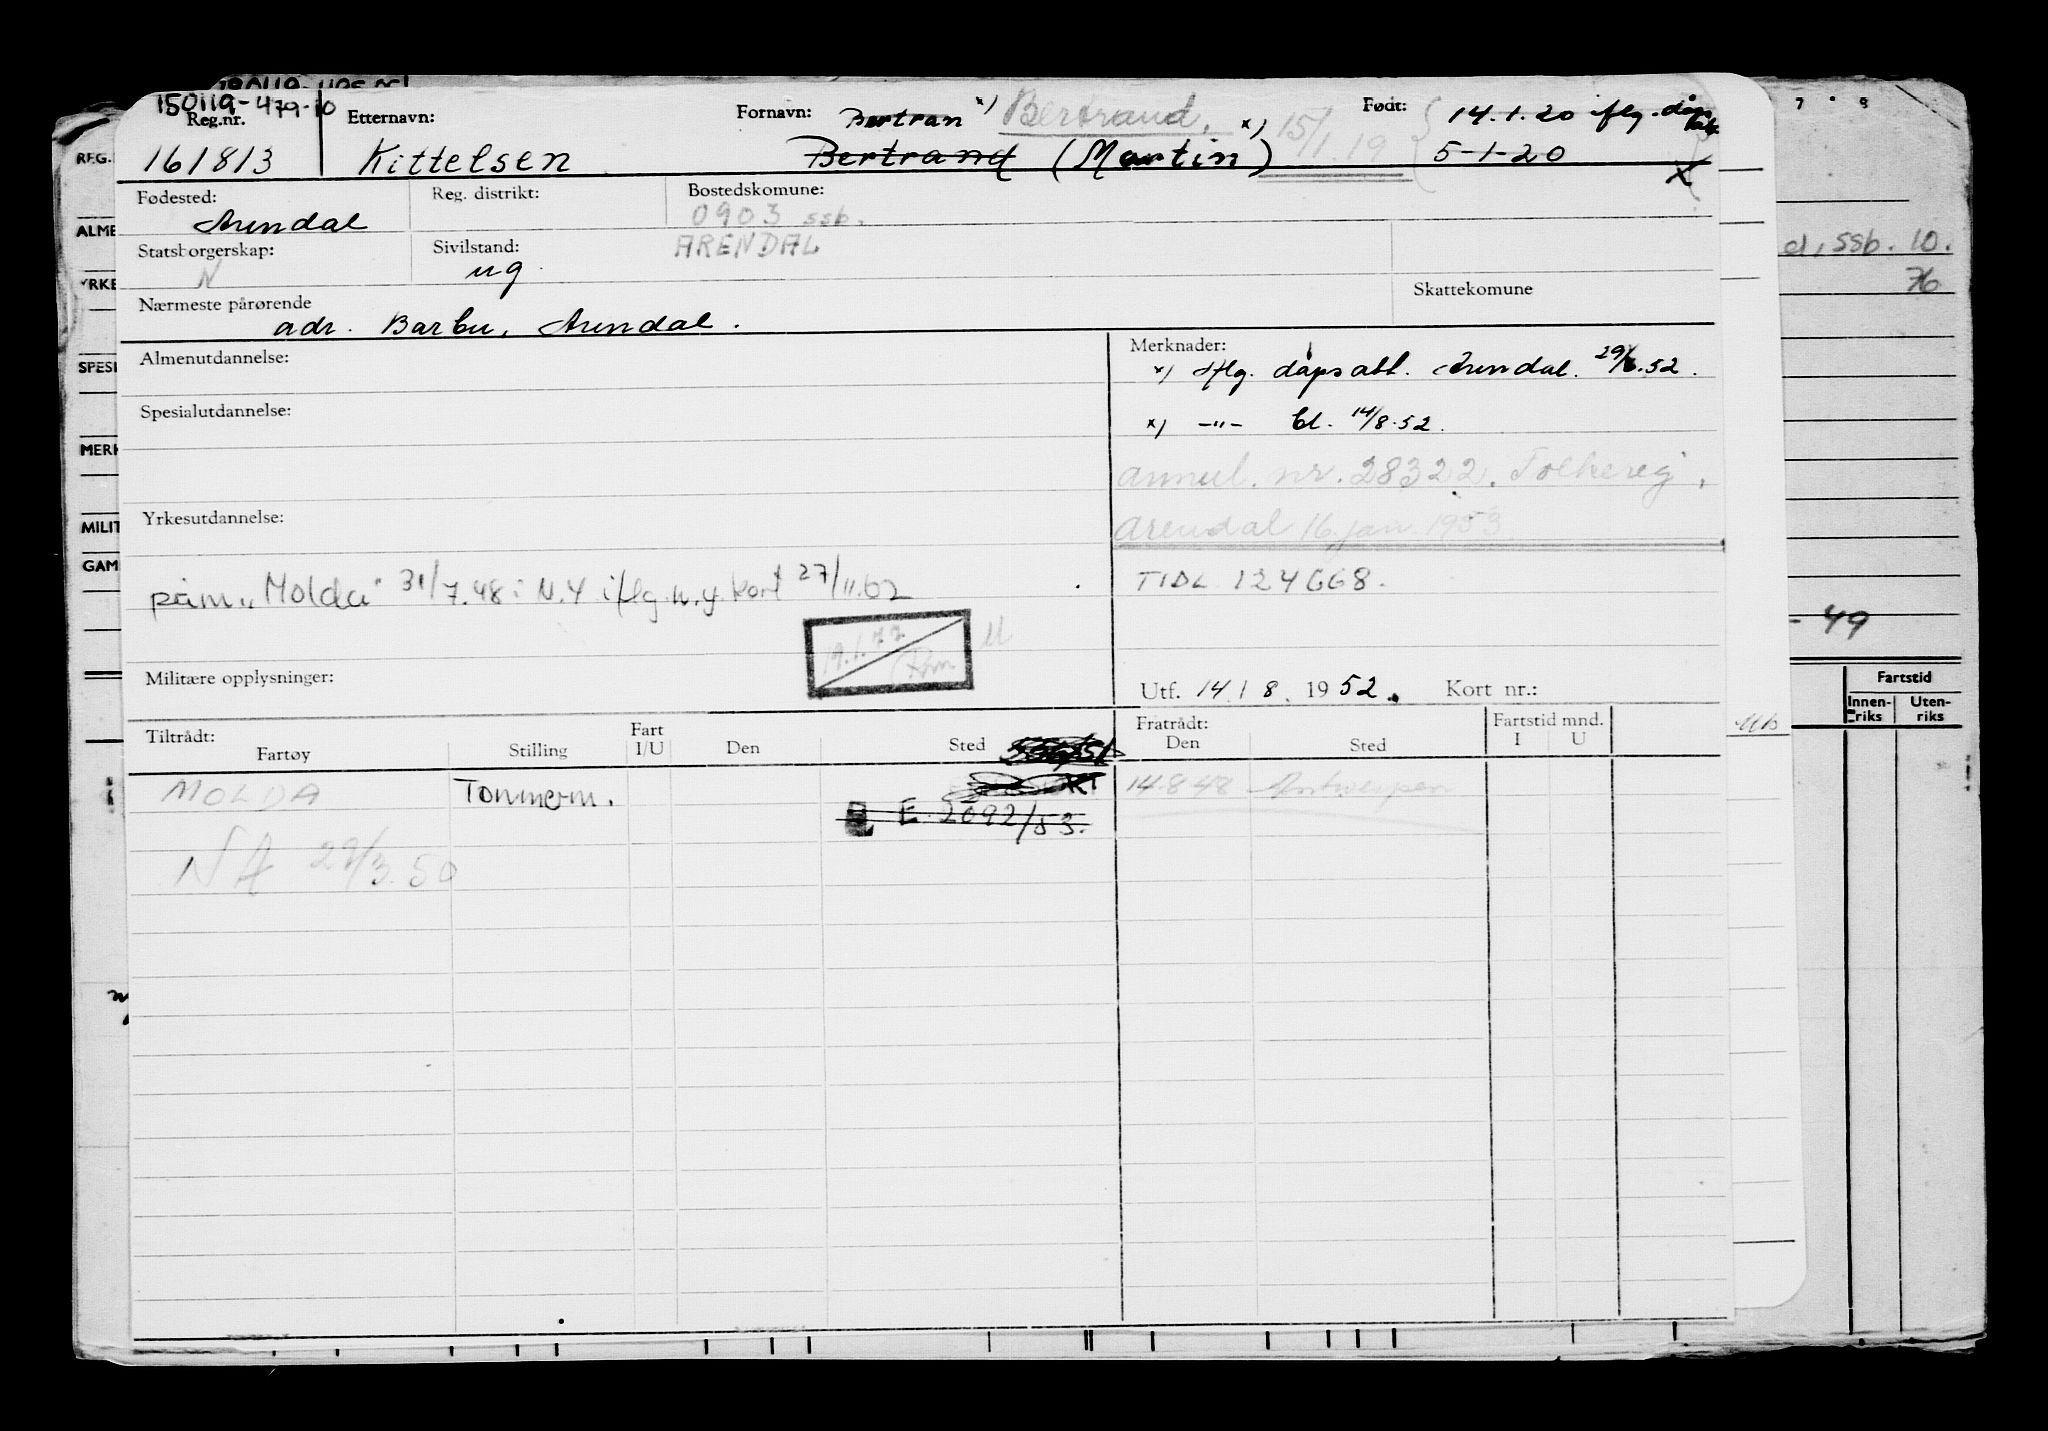 150119-479-10
Reg.nr.
161813
Etternavn:
Kittelsen
Fornavn:
Bertran x) Bertrand,
Bertrand (Martin)
x) 15/1.19
Født:
14.1.20 iflg. dåp
5-1-20
X
Fødested:
Arendal
Reg. distrikt:
Bostedskomune:
0903 ssb.
ARENDAL
Statsborgerskap:
N
Sivilstand:
ug
Nærmeste pårørende
adr. Barbu, Arendal.
Skattekomune
Almenutdannelse:
Spesialutdannelse:
Yrkesutdannelse:
påm. "Molda" 31/7.48 i N.Y iflg. n.y. kort 27/11.62
Militære opplysninger:
Merknader:
x) Iflg. dåpsatt. Arendal. 29/6.52.
x) -"- bl. 14/8.52.
annul. nr. 28322. Folkereg.,
Arendal 16. jan 1953.
TIDL 124668.
Utf. 14 / 8. 1952. Kort nr.:
Tiltrådt:
Fartøy
Stilling
Fart
I/U
Den
Sted
Fratrådt:
Den
Sted
Fartstid mnd.
I U
MOLDA Tømmerm. 14.8.48 Antwerpen
E. 2692/53.
NA 29/3.50
REG.
ALME
YRKE
SPESI
MERK
MILIT
GAM
7 8
d, ssb. 10.
76
- 49
Fartstid
Innen-
riks
Uten-
riks